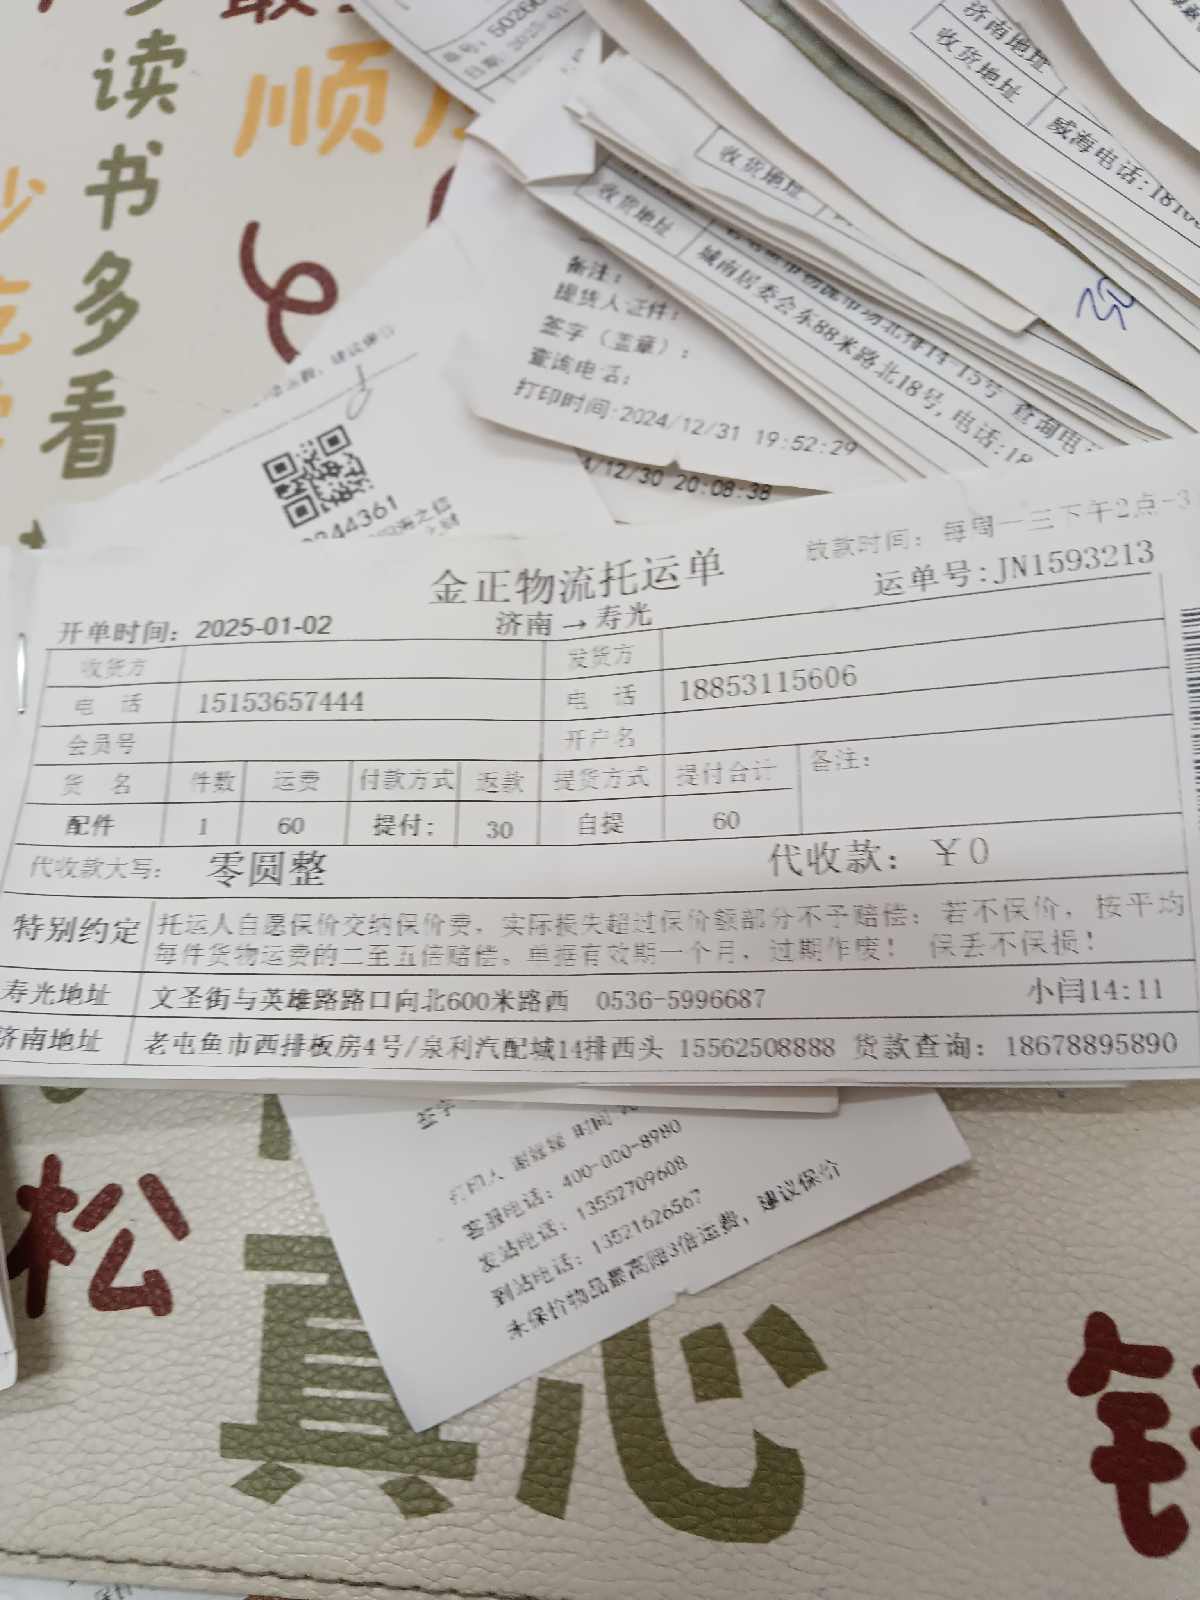 读书多看
顺
日期:
济南地址
收货地址
威海电话:18
收货地址
收货地址
城南居委会东88米路北18号,电话:18
14-15号 查询电
备注:
提货人证件:
签字(盖章):
查询电话:
打印时间:2024/12/31 19:52:29
/12/30 20:08:38
244361
放款时间: 每周一三下午2点-3
金正物流托运单
运单号:JN1593213
开单时间: 2025-01-02
济南→寿光
收货方 发货方
电 话 15153657444 电 话 18853115606
会员号 开户名
货 名 件数 运费 付款方式 返款 提货方式 提付合计 备注:
配件 1 60 提付: 30 自提 60
代收款大写: 零圆整 代收款: ¥0
特别约定 托运人自愿保价交纳保价费,实际损失超过保价额部分不予赔偿;若不保价,按平均
每件货物运费的二至五倍赔偿。单据有效期一个月,过期作废! 保丢不保损!
寿光地址 文圣街与英雄路路口向北600米路西 0536-5996687 小闫14:11
济南地址 老屯鱼市西排板房4号/泉利汽配城14排西头 15562508888 货款查询: 18678895890
签字
客服电话: 400-000-8980
发站电话: 13552709608
到站电话: 13521626567
未保价物品最高赔3倍运费,建议保价
松
真心